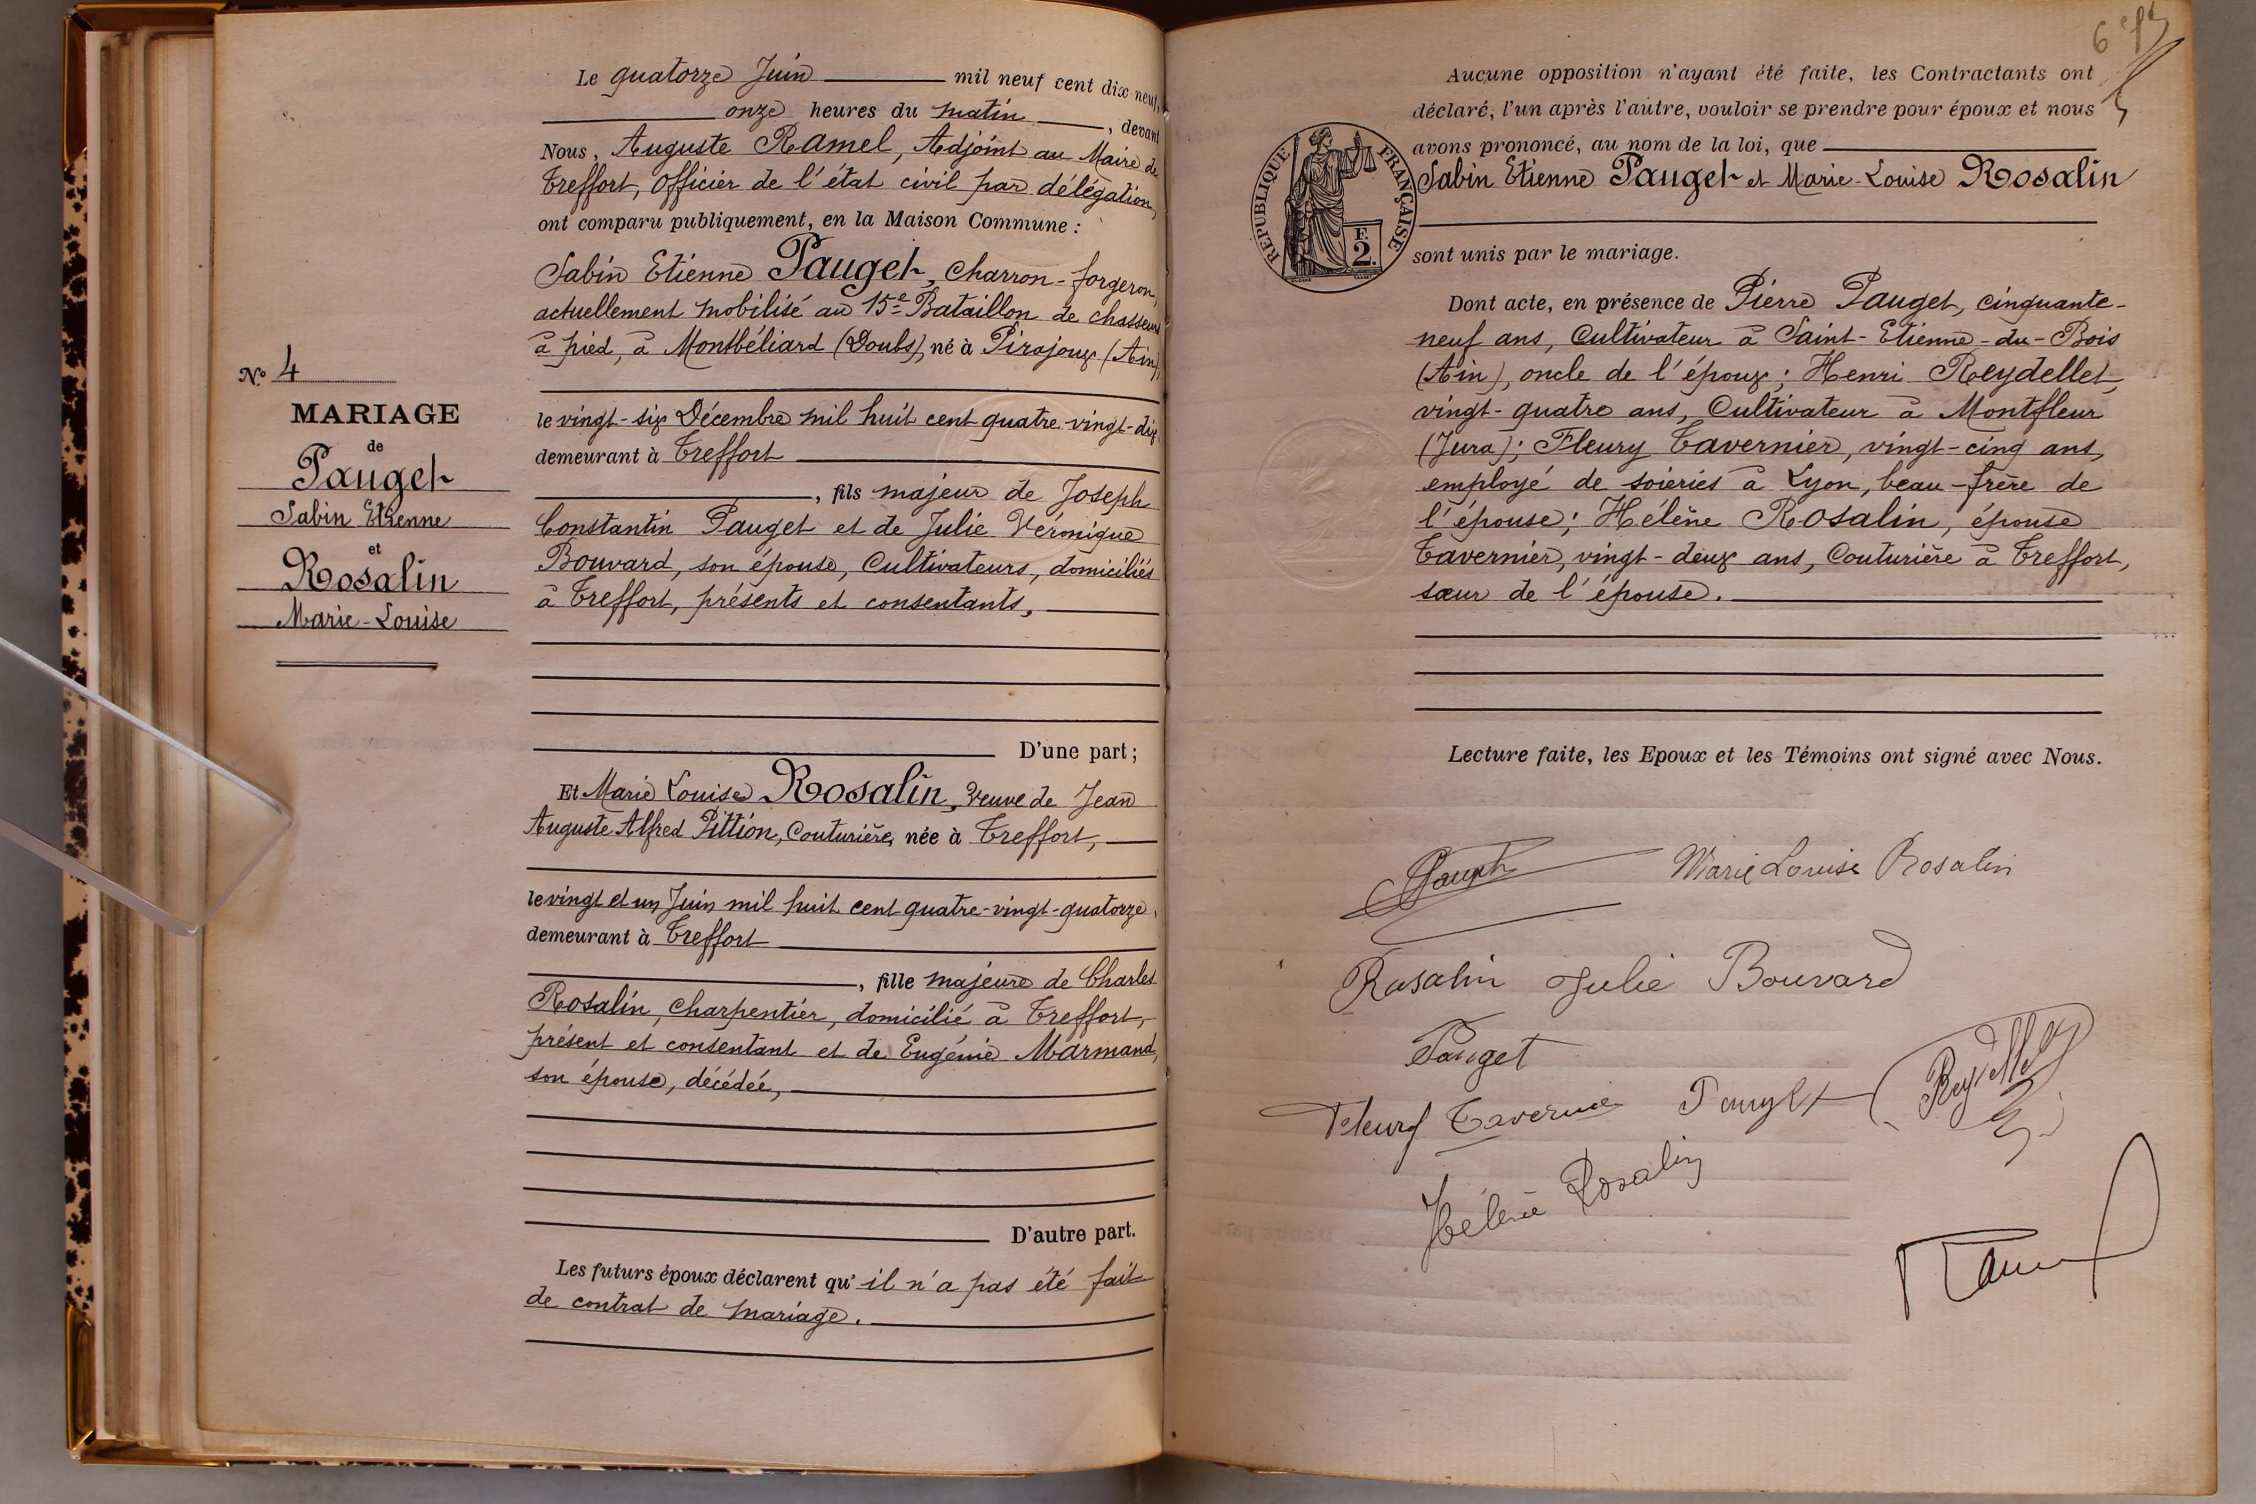 Nº 4
MARIAGE
de
Pauget
Sabin Etienne
et
Rosalin
Marie-Louise
Le quatorze Juin mil neuf cent dix neuf,
onze heures du matin, devant
Nous, Auguste Ramel, Adjoint au Maire de
Treffort, Officier de l'état civil par délégation,
ont comparu publiquement, en la Maison Commune :
Sabin Etienne Pauget, Charron-forgeron,
actuellement mobilisé au 15e Bataillon de chasseurs
à pied, à Montbéliard (Doubs), né à Pirajoux (Ain),
le vingt-six Décembre mil huit cent quatre-vingt-dix,
demeurant à Treffort
, fils majeur de Joseph
Constantin Pauget et de Julie Veronique
Bouvard, son épouse, Cultivateurs, domiciliés
à Treffort, présents et consentants,
D'une part ;
Et Marie Louise Rosalin, Veuve de Jean
Auguste Alfred Pittion, Couturière, née à Treffort,
le vingt et un Juin mil huit cent quatre-vingt-quatorze,
demeurant à Treffort
, fille majeure de Charles
Rosalin, Charpentier, domicilié à Treffort,
présent et consentant et de Eugénie Marmand,
son épouse, décédée,
D'autre part.
Les futurs époux déclarent qu'il n'a pas été fait
de contrat de mariage.
6
Aucune opposition n'ayant été faite, les Contractants ont
déclaré, l'un après l'autre, vouloir se prendre pour époux et nous
avons prononcé, au nom de la loi, que
Sabin Etienne Pauget et Marie-Louise Rosalin
RÉPUBLIQUE FRANÇAISE
F.
2.
sont unis par le mariage.
Dont acte, en présence de Pierre Pauget, cinquante-
neuf ans, Cultivateur à Saint-Etienne-du-Bois
(Ain), oncle de l'époux ; Henri Reydellet,
vingt-quatre ans, Cultivateur à Montfleur
(Jura) ; Fleury Tavernier, vingt-cinq ans,
employé de soieries à Lyon, beau-frère de
l'épouse ; Hélène Rosalin, épouse
Tavernier, vingt-deux ans, Couturière à Treffort,
sœur de l'épouse.
Lecture faite, les Epoux et les Témoins ont signé avec Nous.
Marie Louise Rosalin
Rosalin Julie Bouvard
Pauget
Fleury Tavernier Pauget Reydellet
Hélène Rosalin
Ramel